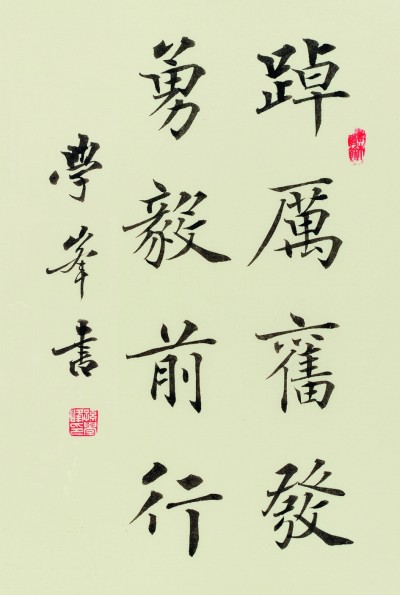 踔厲奮發
勇毅前行
學峯書